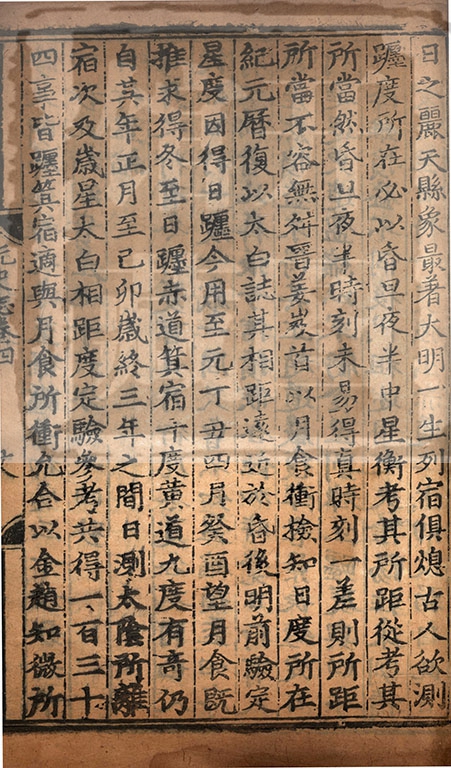 日之麗天縣象最著大明一生列宿俱熄古人欲測
躔度所在必以昏旦夜半中星衡考其所距從考其
所當然昏旦夜半時刻未易得眞時刻一差則所距
所當不容無舛晉姜岌首以月食衝檢知日度所在
紀元曆復以太白誌其相距遠近於昏後明前驗定
星度因得日躔今用至元丁丑四月癸酉望月食既
推求得冬至日躔赤道箕宿十度黃道九度有奇仍
自其年正月至己卯歲終三年之間日測太陰所離
宿次及歲星太白相距度定驗參考共得一百三十
四事皆躔箕宿適與月食所衝允合以金趙知微所
元史志卷四